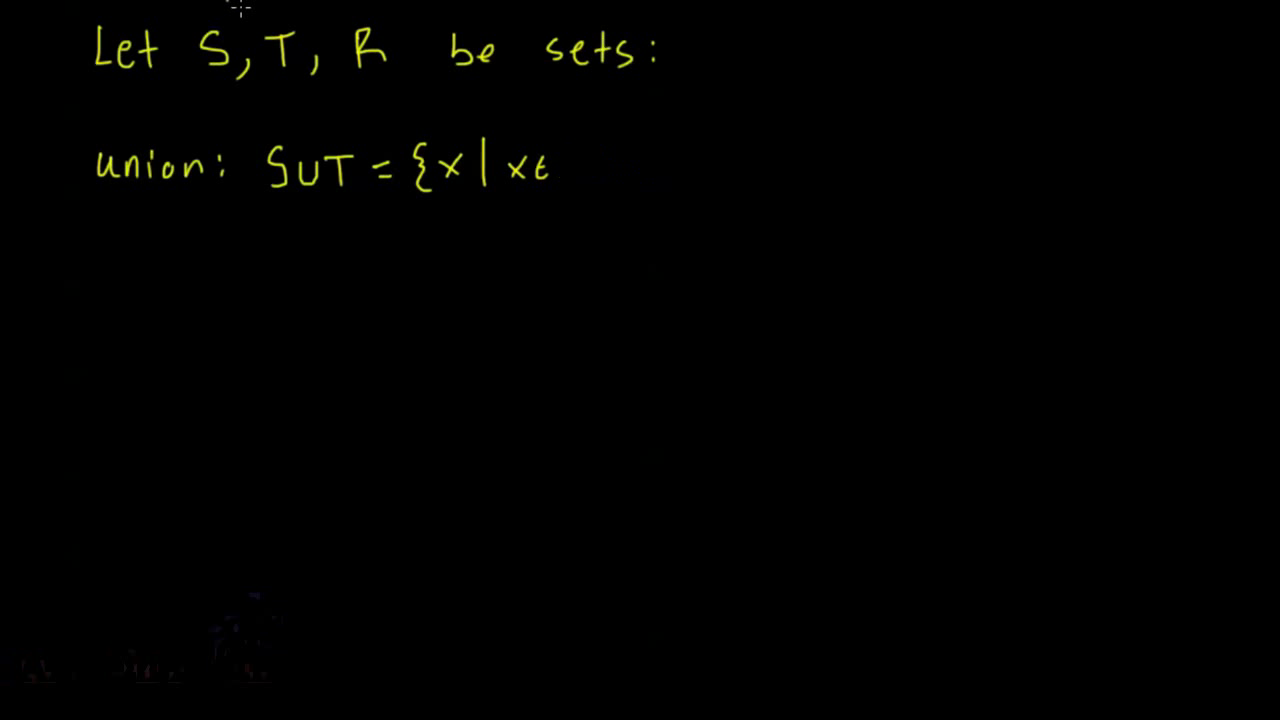 Let S, T, R be sets:
union: S∪T = {x | x∈